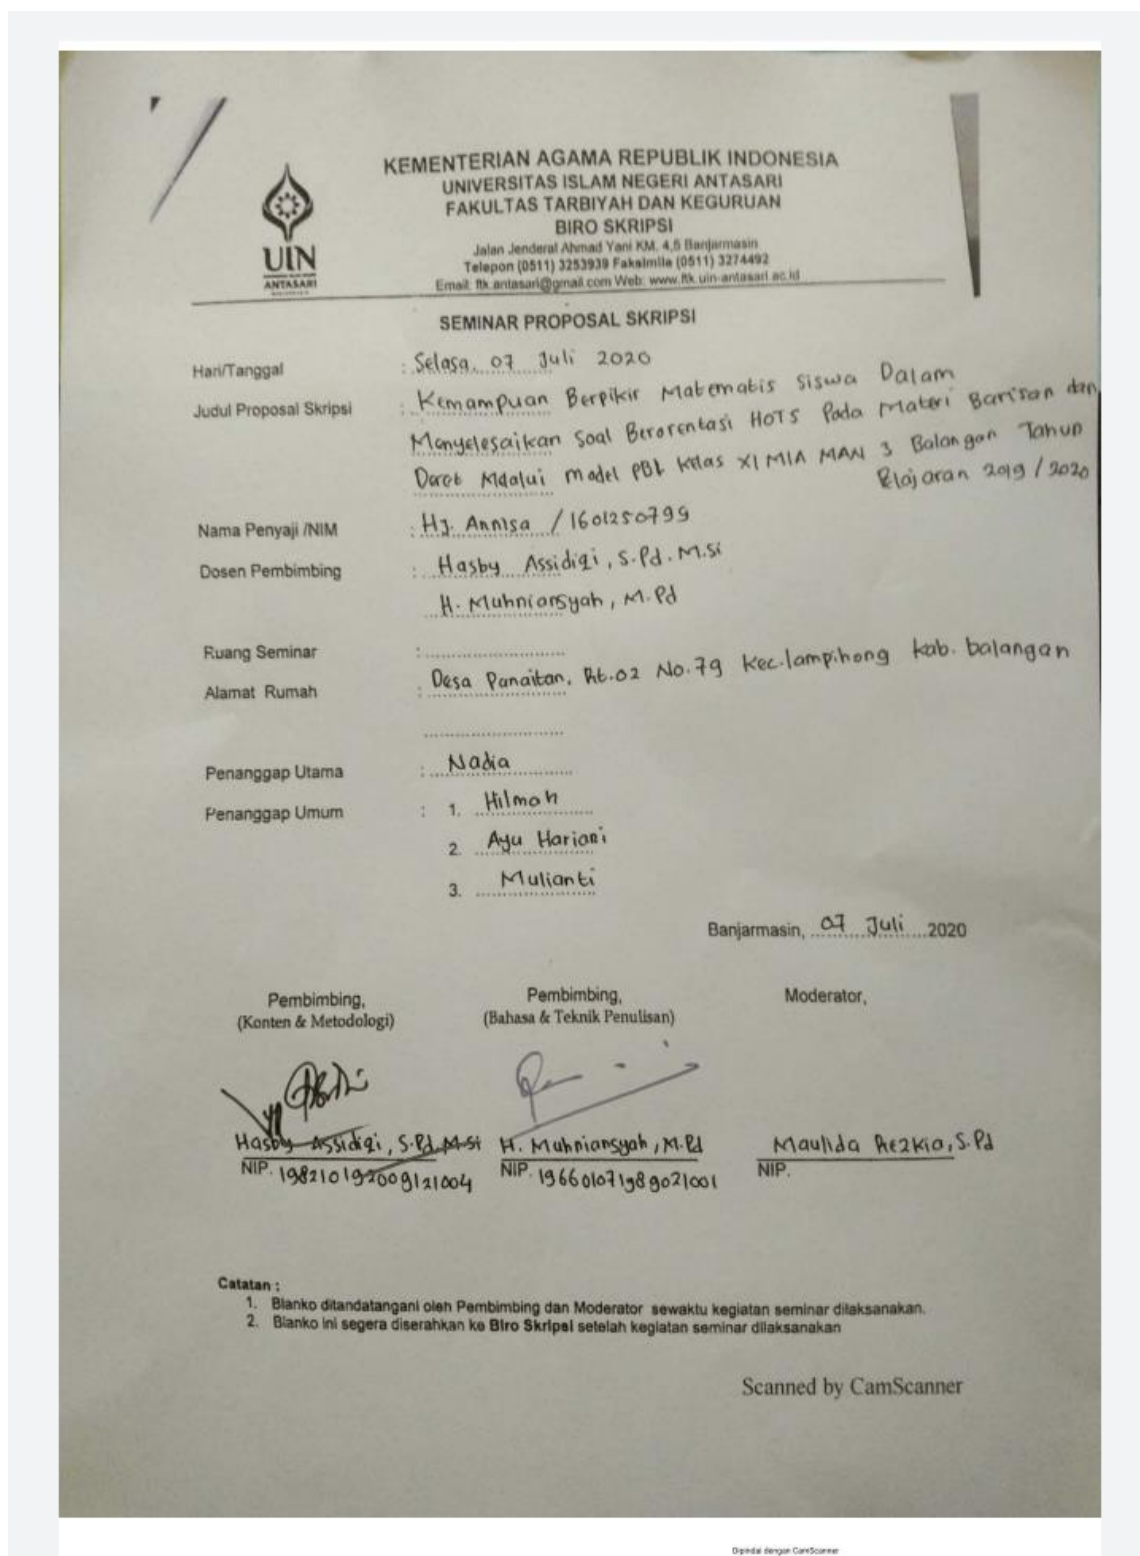 KEMENTERIAN AGAMA REPUBLIK INDONESIA
UNIVERSITAS ISLAM NEGERI ANTASARI
FAKULTAS TARBIYAH DAN KEGURUAN
BIRO SKRIPSI
Jalan Jenderal Ahmad Yani KM. 4,5 Banjarmasin
Telepon (0511) 3253939 Faksimile (0511) 3274492
Email: ftk.antasari@gmail.com Web: www.ftk.uin-antasari.ac.id
UIN
ANTASARI
SEMINAR PROPOSAL SKRIPSI
Hari/Tanggal : Selasa, 07 Juli 2020
Judul Proposal Skripsi : Kemampuan Berpikir Matematis Siswa Dalam
Menyelesaikan Soal Berorentasi HOTS Pada Materi Barisan dan
Deret Melalui model PBL Kelas XI MIA MAN 3 Balangan Tahun
Pelajaran 2019 / 2020
Nama Penyaji /NIM : Hj. Annisa / 1601250799
Dosen Pembimbing : Hasby Assidiqi, S.Pd. M.Si
H. Muhniansyah, M.Pd
Ruang Seminar :
Alamat Rumah : Desa Panaitan, Rt.02 No.79 Kec.lampihong kab. balangan
Penanggap Utama : Nadia
Penanggap Umum : 1. Hilmah
2. Ayu Hariani
3. Mulianti
Banjarmasin, 07 Juli 2020
Pembimbing, Pembimbing, Moderator,
(Konten & Metodologi) (Bahasa & Teknik Penulisan)
Hasby Assidiqi, S.Pd. M.Si H. Muhniansyah, M.Pd Maulida Rezkia, S.Pd
NIP. 198210192009121004 NIP. 196601071989021001 NIP.
Catatan :
1. Blanko ditandatangani oleh Pembimbing dan Moderator sewaktu kegiatan seminar dilaksanakan.
2. Blanko ini segera diserahkan ke Biro Skripsi setelah kegiatan seminar dilaksanakan
Scanned by CamScanner
Dipindai dengan CamScanner